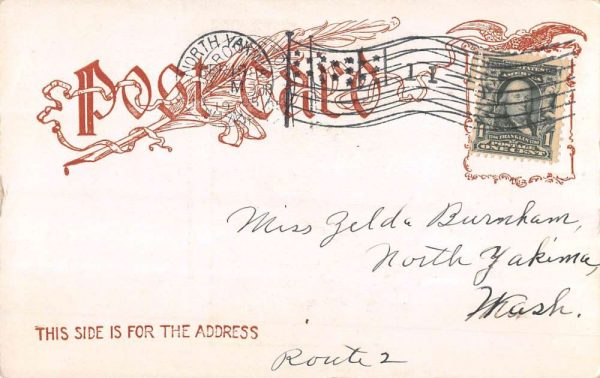 Post Card
NORTH YAK
1790 FRANKLIN
POSTAGE
ONE CENT
1
Miss Zelda Burnham,
North Yakima,
Wash.
THIS SIDE IS FOR THE ADDRESS
Route 2